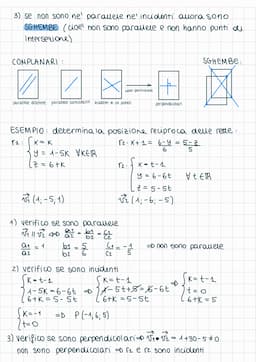 3) se non sono ne' parallele ne' incidenti allora sono
SGHEMBE (cioè non sono parallele e non hanno punti di
intersezione)
COMPLANARI:
SGHEMBE:
parallele distinte
parallele coincidenti
incidenti in un punto
caso particolare
perpendicolari
ESEMPIO: determina la posizione reciproca delle rette:
r₁: { x = k
y = 1-5k ∀k∈ℝ
z = 6+k
r₂: x+1 = 6-y/6 = 5-z/5
r₂: { x = t-1
y = 6-6t ∀t∈ℝ
z = 5-5t
v₁ (1,-5,1)
v₂ (1;-6;-5)
1) verifico se sono parallele
v₁ ∥ v₂ ⇔ a₁/a₂ = b₁/b₂ = c₁/c₂
a₁/a₂ = 1 b₁/b₂ = 5/6 c₁/c₂ = -1/5 ⇒ non sono parallele
2) verifico se sono incidenti
{ k = t-1
1-5k = 6-6t
6+k = 5-5t
⇒ { k = t-1
1-5t+5 = 6-6t
6+k = 5-5t
⇒ { k = t-1
t = 0
6+k = 5
{ k = -1
t = 0
⇒ P(-1,6,5)
3) verifico se sono perpendicolari ⇒ v₁ • v₂ = 1+30-5 ≠ 0
non sono perpendicolari ⇒ r₁ e r₂ sono incidenti